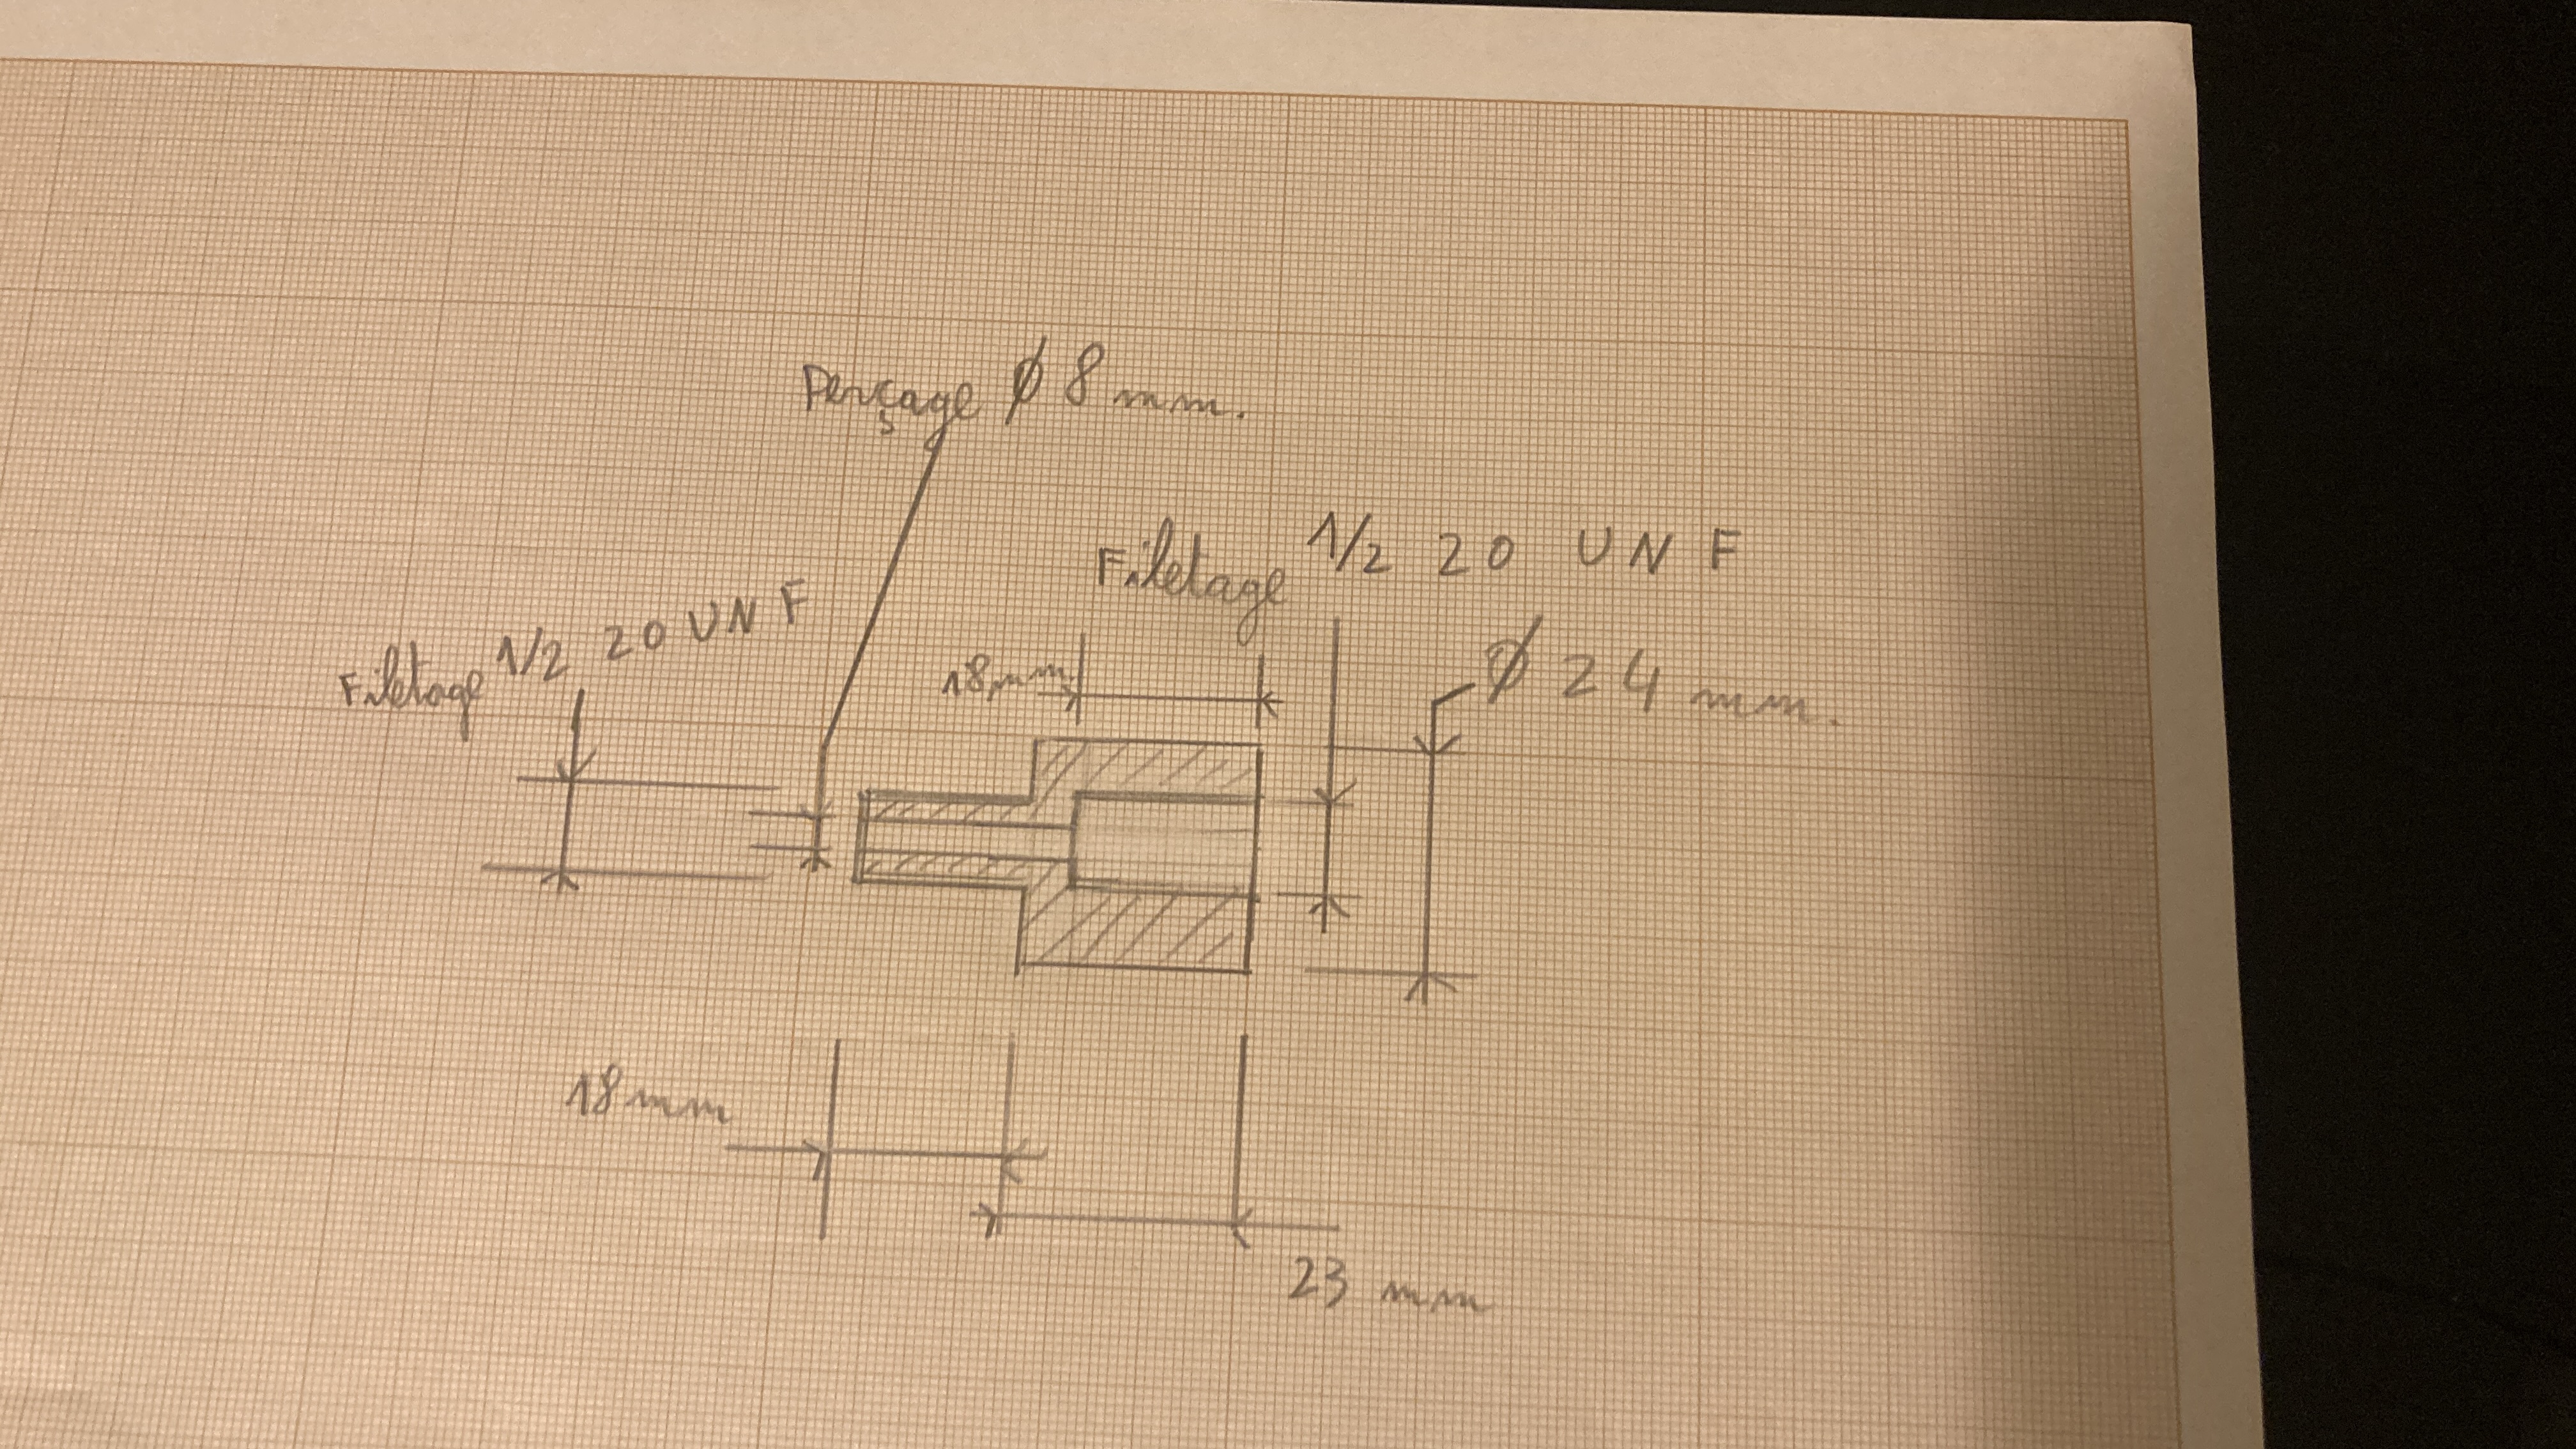 Perçage Ø 8 mm.
Filetage 1/2 20 UNF
Filetage 1/2 20 UNF
18mm
Ø 24 mm.
18mm
23 mm